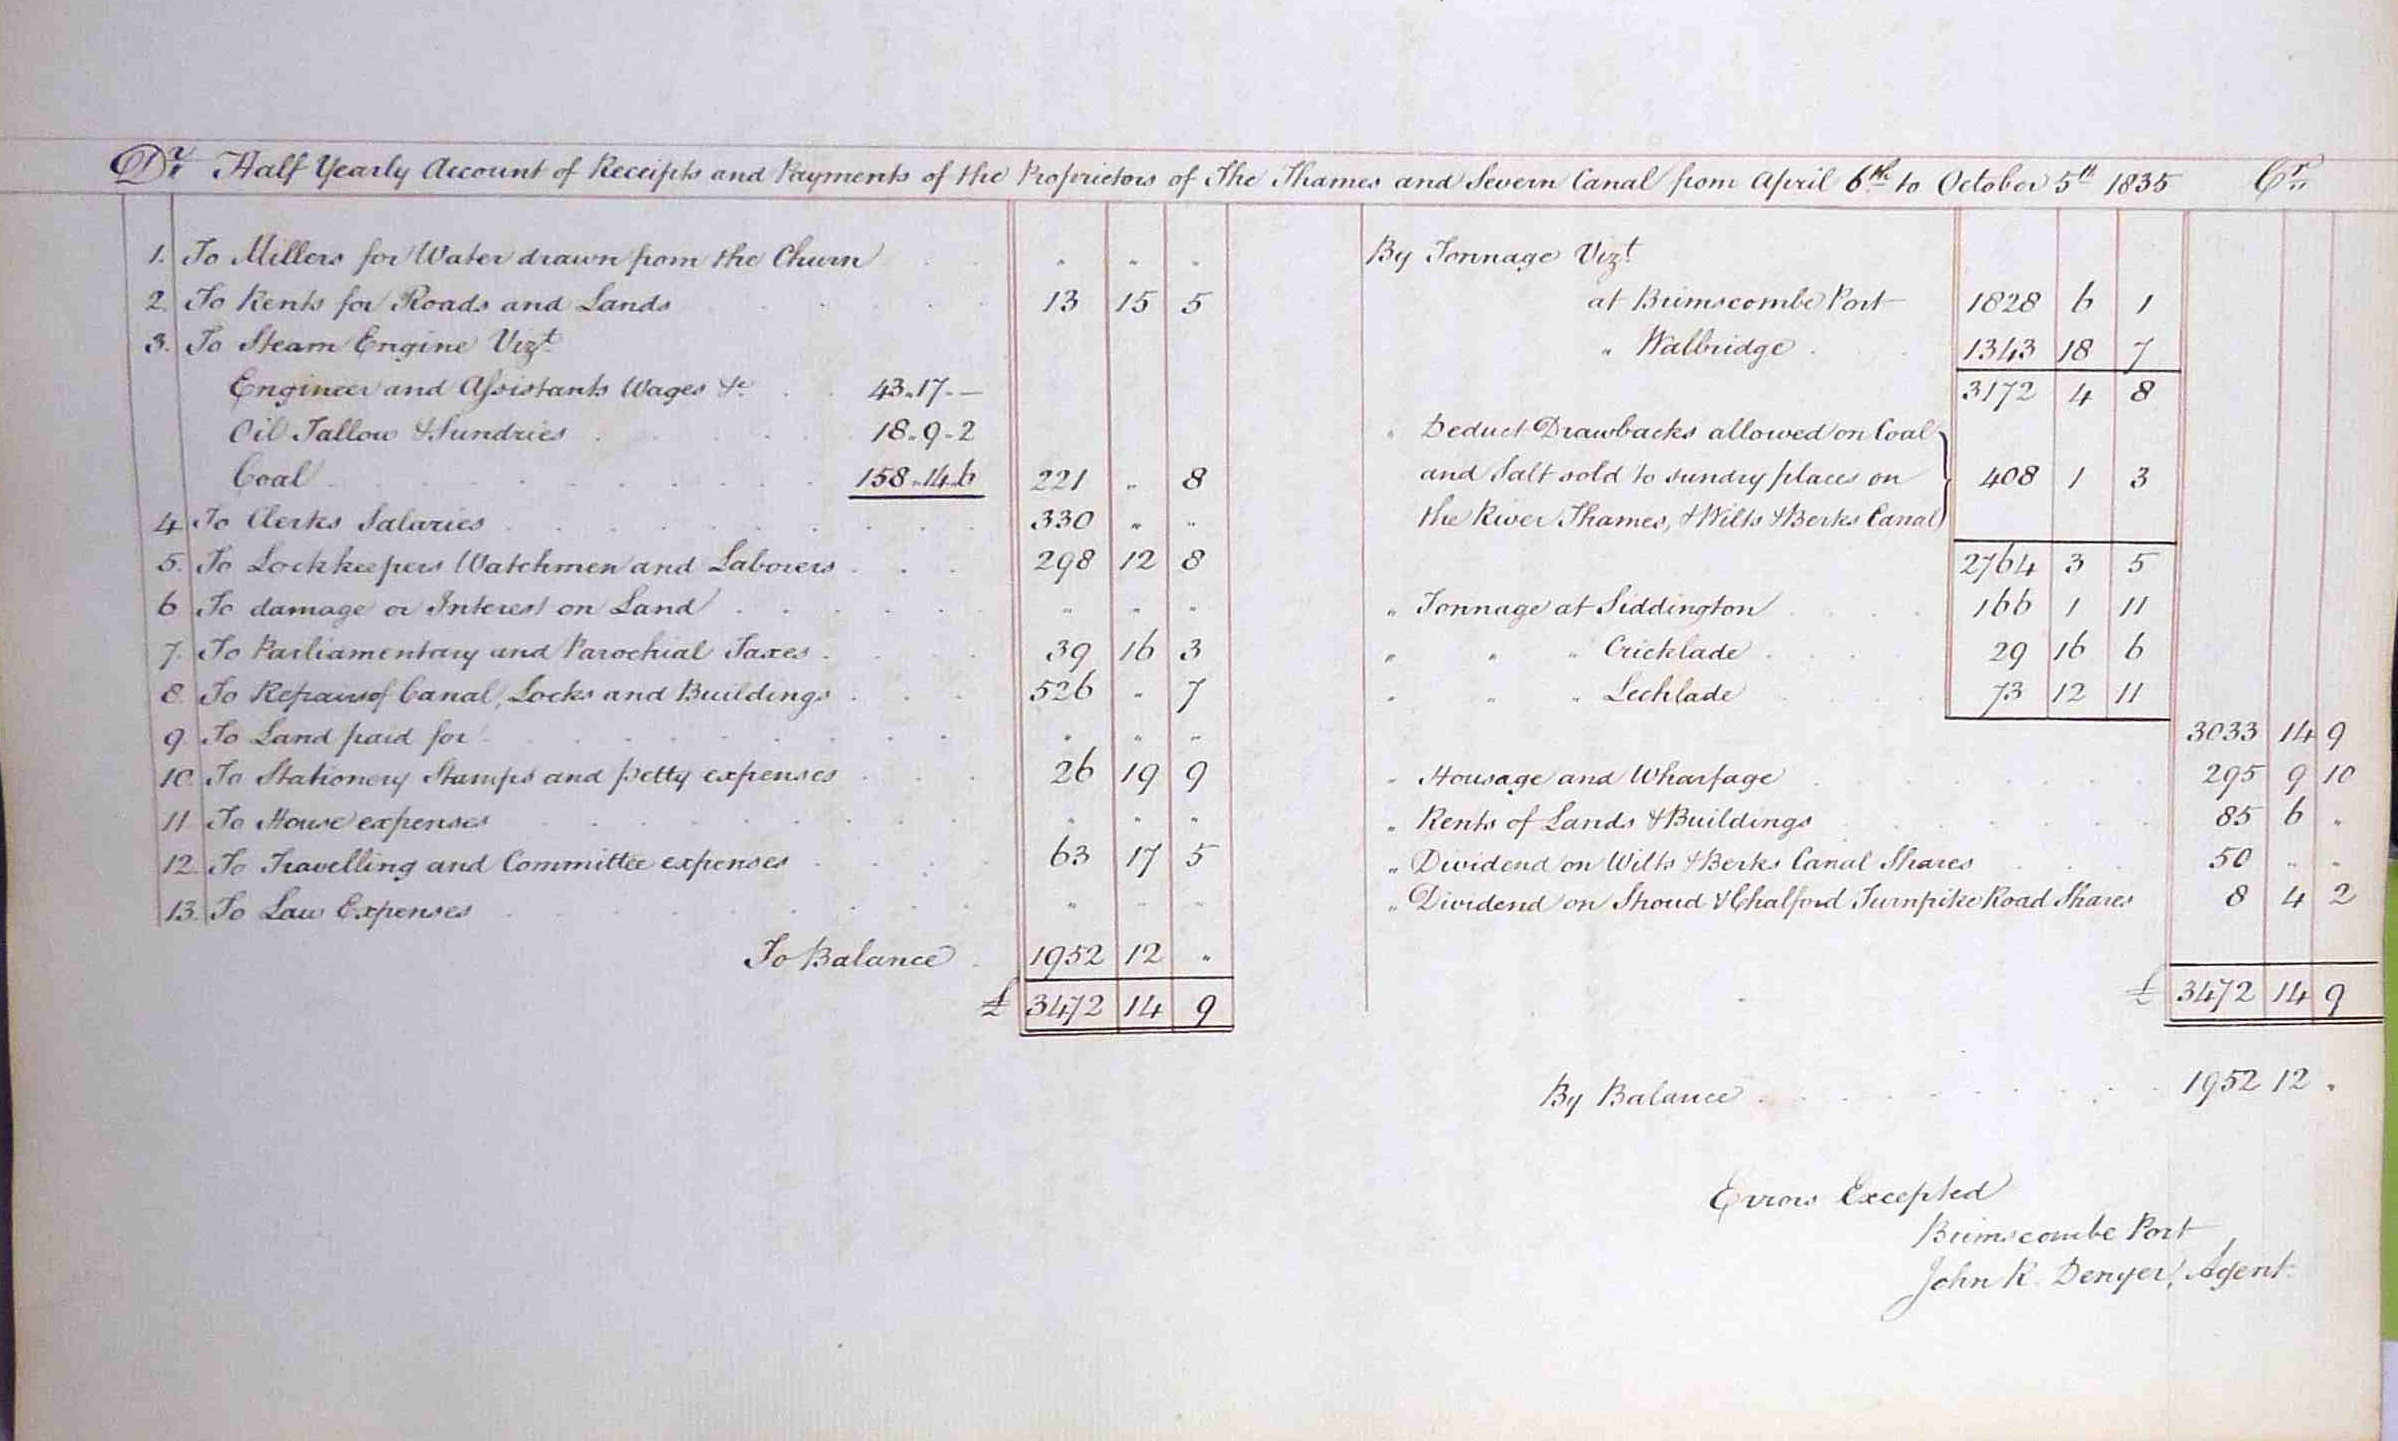 Dr Half Yearly Account of Receipts and Payments of the Proprietors of The Thames and Severn Canal from April 6th to October 5th 1835 Cr
1. To Millers for Water drawn from the Churn " " "
2. To Rents for Roads and Lands 13 15 5
3. To Steam Engine Vizt
Engineer and Assistants Wages &c 43 " 17 - —
Oil Tallow & Sundries 18 - 9 - 2
Coal 158 " 14 " 6 221 " 8
4 To Clerks Salaries 330 " "
5. To Lockkeepers Watchmen and Laborers 298 12 8
6 To damage or Interest on Land " " "
7. To Parliamentary and Parochial Taxes 39 16 3
8. To Repairs of Canal, Locks and Buildings 526 " 7
9. To Land paid for " " "
10. To Stationery Stamps and petty expenses 26 19 9
11. To House expenses " " "
12. To Travelling and Committee expenses 63 17 5
13. To Law Expenses " " "
To Balance 1952 12 "
£ 3472 14 9
By Tonnage Vizt
at Brimscombe Port 1828 6 1
" Wallbridge 1343 18 7
3172 4 8
" Deduct Drawbacks allowed on Coal
and Salt sold to sundry places on 408 1 3
the River Thames, & Wilts & Berks Canal
2764 3 5
" Tonnage at Siddington 166 1 11
" " " Cricklade 29 16 6
" " " Lechlade 73 12 11
3033 14 9
" Housage and Wharfage 295 9 10
" Rents of Lands & Buildings 85 6 "
" Dividend on Wilts & Berks Canal Shares 50 " "
" Dividend on Stroud & Chalford Turnpike Road Shares 8 4 2
£ 3472 14 9
By Balance 1952 12 "
Errors Excepted
Brimscombe Port
John R. Denyer, Agent.